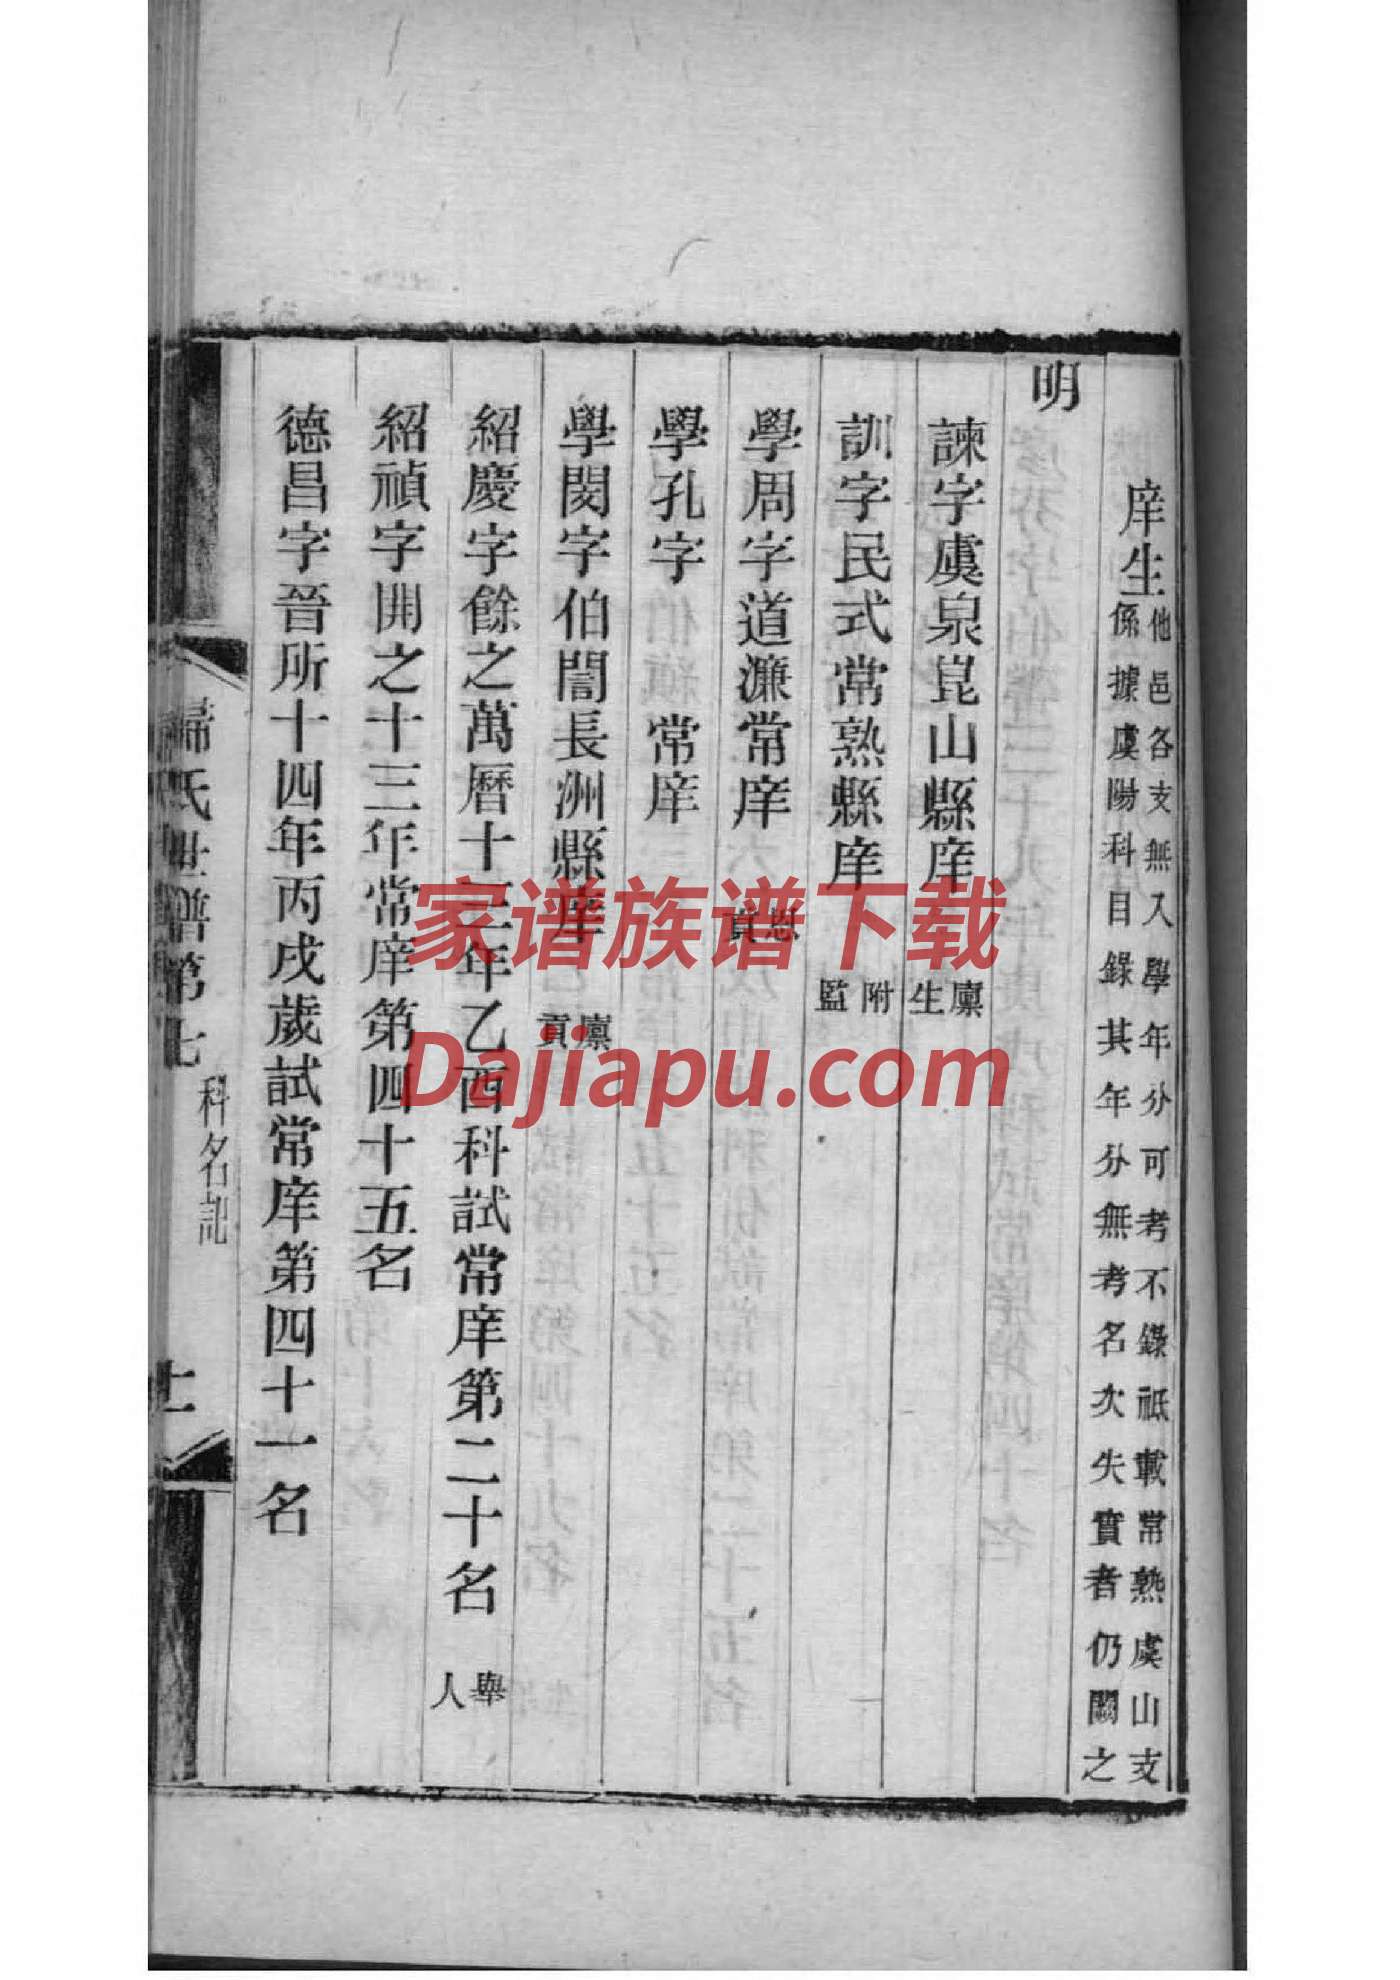 庠生
他邑各支無入學年分可考不錄祇載常熟虞山支
係據虞陽科目錄其年分無考名次失實者仍闕之
明
諫字虞泉崑山縣庠 廪生
訓字民式常熟縣庠 附監
學周字道濂常庠 恩貢
學孔字 常庠
學閔字伯誾長洲縣庠 廪貢
紹慶字餘之萬曆十三年乙酉科試常庠第二十名 舉人
紹禎字開之十三年常庠第四十五名
德昌字晉所十四年丙戌歲試常庠第四十一名
歸氏世譜第七
科名記
十一
家谱族谱下载
Dajiapu.com